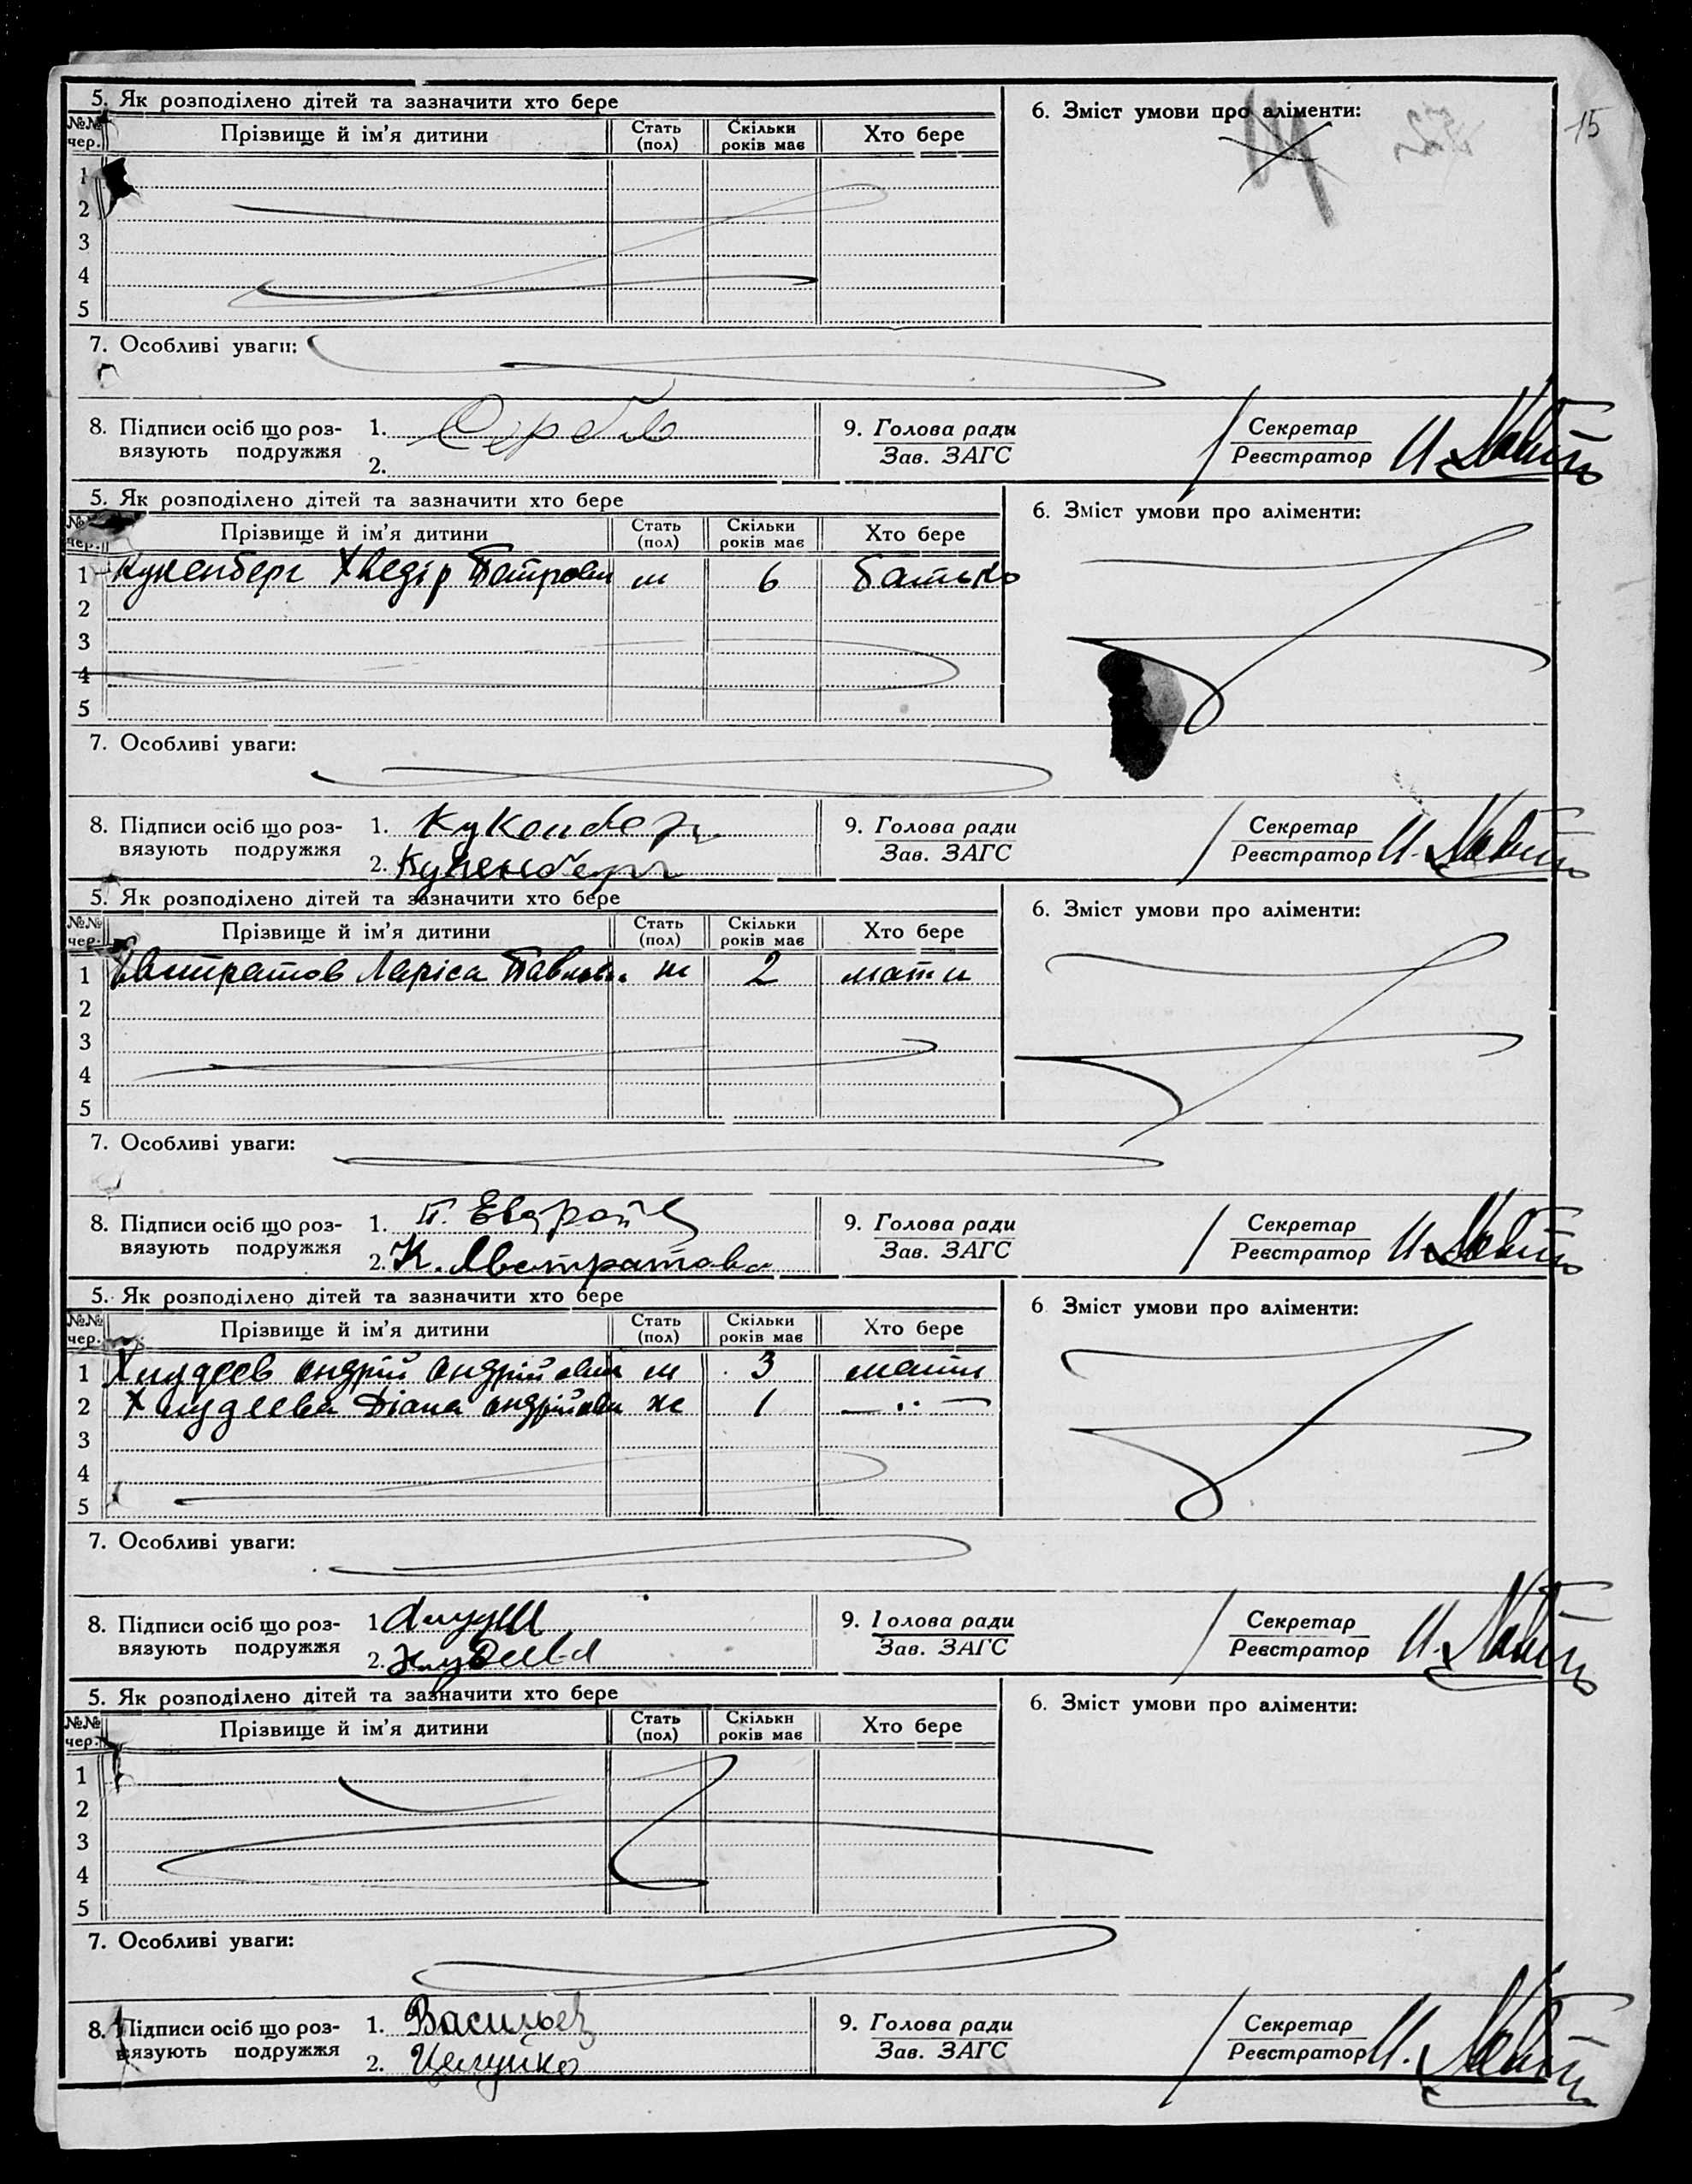 15
5. Як розподілено дітей та зазначити хто бере
6. Зміст умови про аліменти:
№№ чер. Прізвище й ім'я дитини Стать (пол) Скільки років має Хто бере
1
2
3
4
5
7. Особливі уваги:
8. Підписи осіб що роз- 1.
вязують подружжя 2.
9. Голова ради
Зав. ЗАГС
Секретар
Реєстратор
5. Як розподілено дітей та зазначити хто бере
6. Зміст умови про аліменти:
№ чер. Прізвище й ім'я дитини Стать (пол) Скільки років має Хто бере
1 Кукенберг Хведір Петрович м 6 батько
2
3
4
5
7. Особливі уваги:
8. Підписи осіб що роз- 1. Кукенберг
вязують подружжя 2. Кукенберг
9. Голова ради
Зав. ЗАГС
Секретар
Реєстратор
5. Як розподілено дітей та зазначити хто бере
6. Зміст умови про аліменти:
№№ чер. Прізвище й ім'я дитини Стать (пол) Скільки років має Хто бере
1 Ларіса Павлівн ж 2 мати
2
3
4
5
7. Особливі уваги:
8. Підписи осіб що роз- 1. П.
вязують подружжя 2. К. Австратова
9. Голова ради
Зав. ЗАГС
Секретар
Реєстратор
5. Як розподілено дітей та зазначити хто бере
6. Зміст умови про аліменти:
№№ чер. Прізвище й ім'я дитини Стать (пол) Скільки років має Хто бере
1 Хлудеев Андрій Андрійович м 3 мати
2 Хлудеева Діана Андрійовн ж 1 —··—
3
4
5
7. Особливі уваги:
8. Підписи осіб що роз- 1.
вязують подружжя 2. Хлудеева
9. Голова ради
Зав. ЗАГС
Секретар
Реєстратор
5. Як розподілено дітей та зазначити хто бере
6. Зміст умови про аліменти:
№№ чер. Прізвище й ім'я дитини Стать (пол) Скільки років має Хто бере
1
2
3
4
5
7. Особливі уваги:
8. Підписи осіб що роз- 1. Васильев
вязують подружжя 2.
9. Голова ради
Зав. ЗАГС
Секретар
Реєстратор